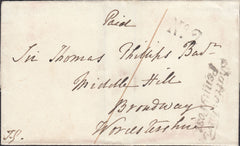 Paid
No. 6
Sir Thomas Phillips Bart
Middle Hill
Broadway
Worcestershire